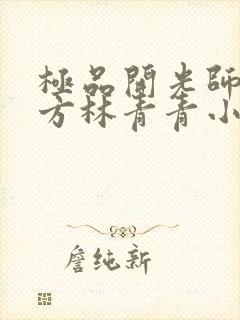 極品開光師
方林青青小
詹纯新